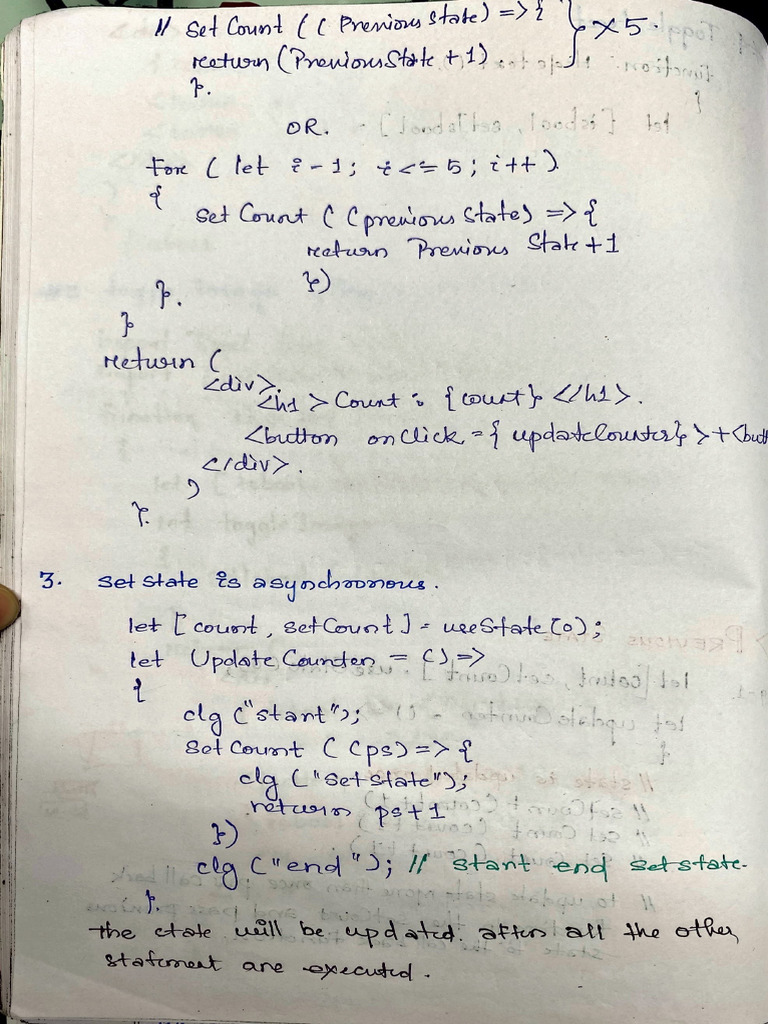 // set Count ( ( Previous state) => { } × 5.
return (Previous State + 1)
}.
OR.
for ( let i - 1; i <= 5; i++ )
{
set Count ( (previous state) => {
return Previous State + 1
})
}.
}
return (
<div>.
<h1> Count : {count} </h1>.
<button onClick = { updateCounter} > + <butt
</div>.
)
}.
3. set state is asynchronous.
let [ count, setCount ] = useState (0);
let Update Counter = () =>
{
clg ("start");
set Count ( (ps) => {
clg ("set state");
return ps + 1
})
clg ("end"); // start end set state.
}.
the state will be updated. after all the other
statement are executed.